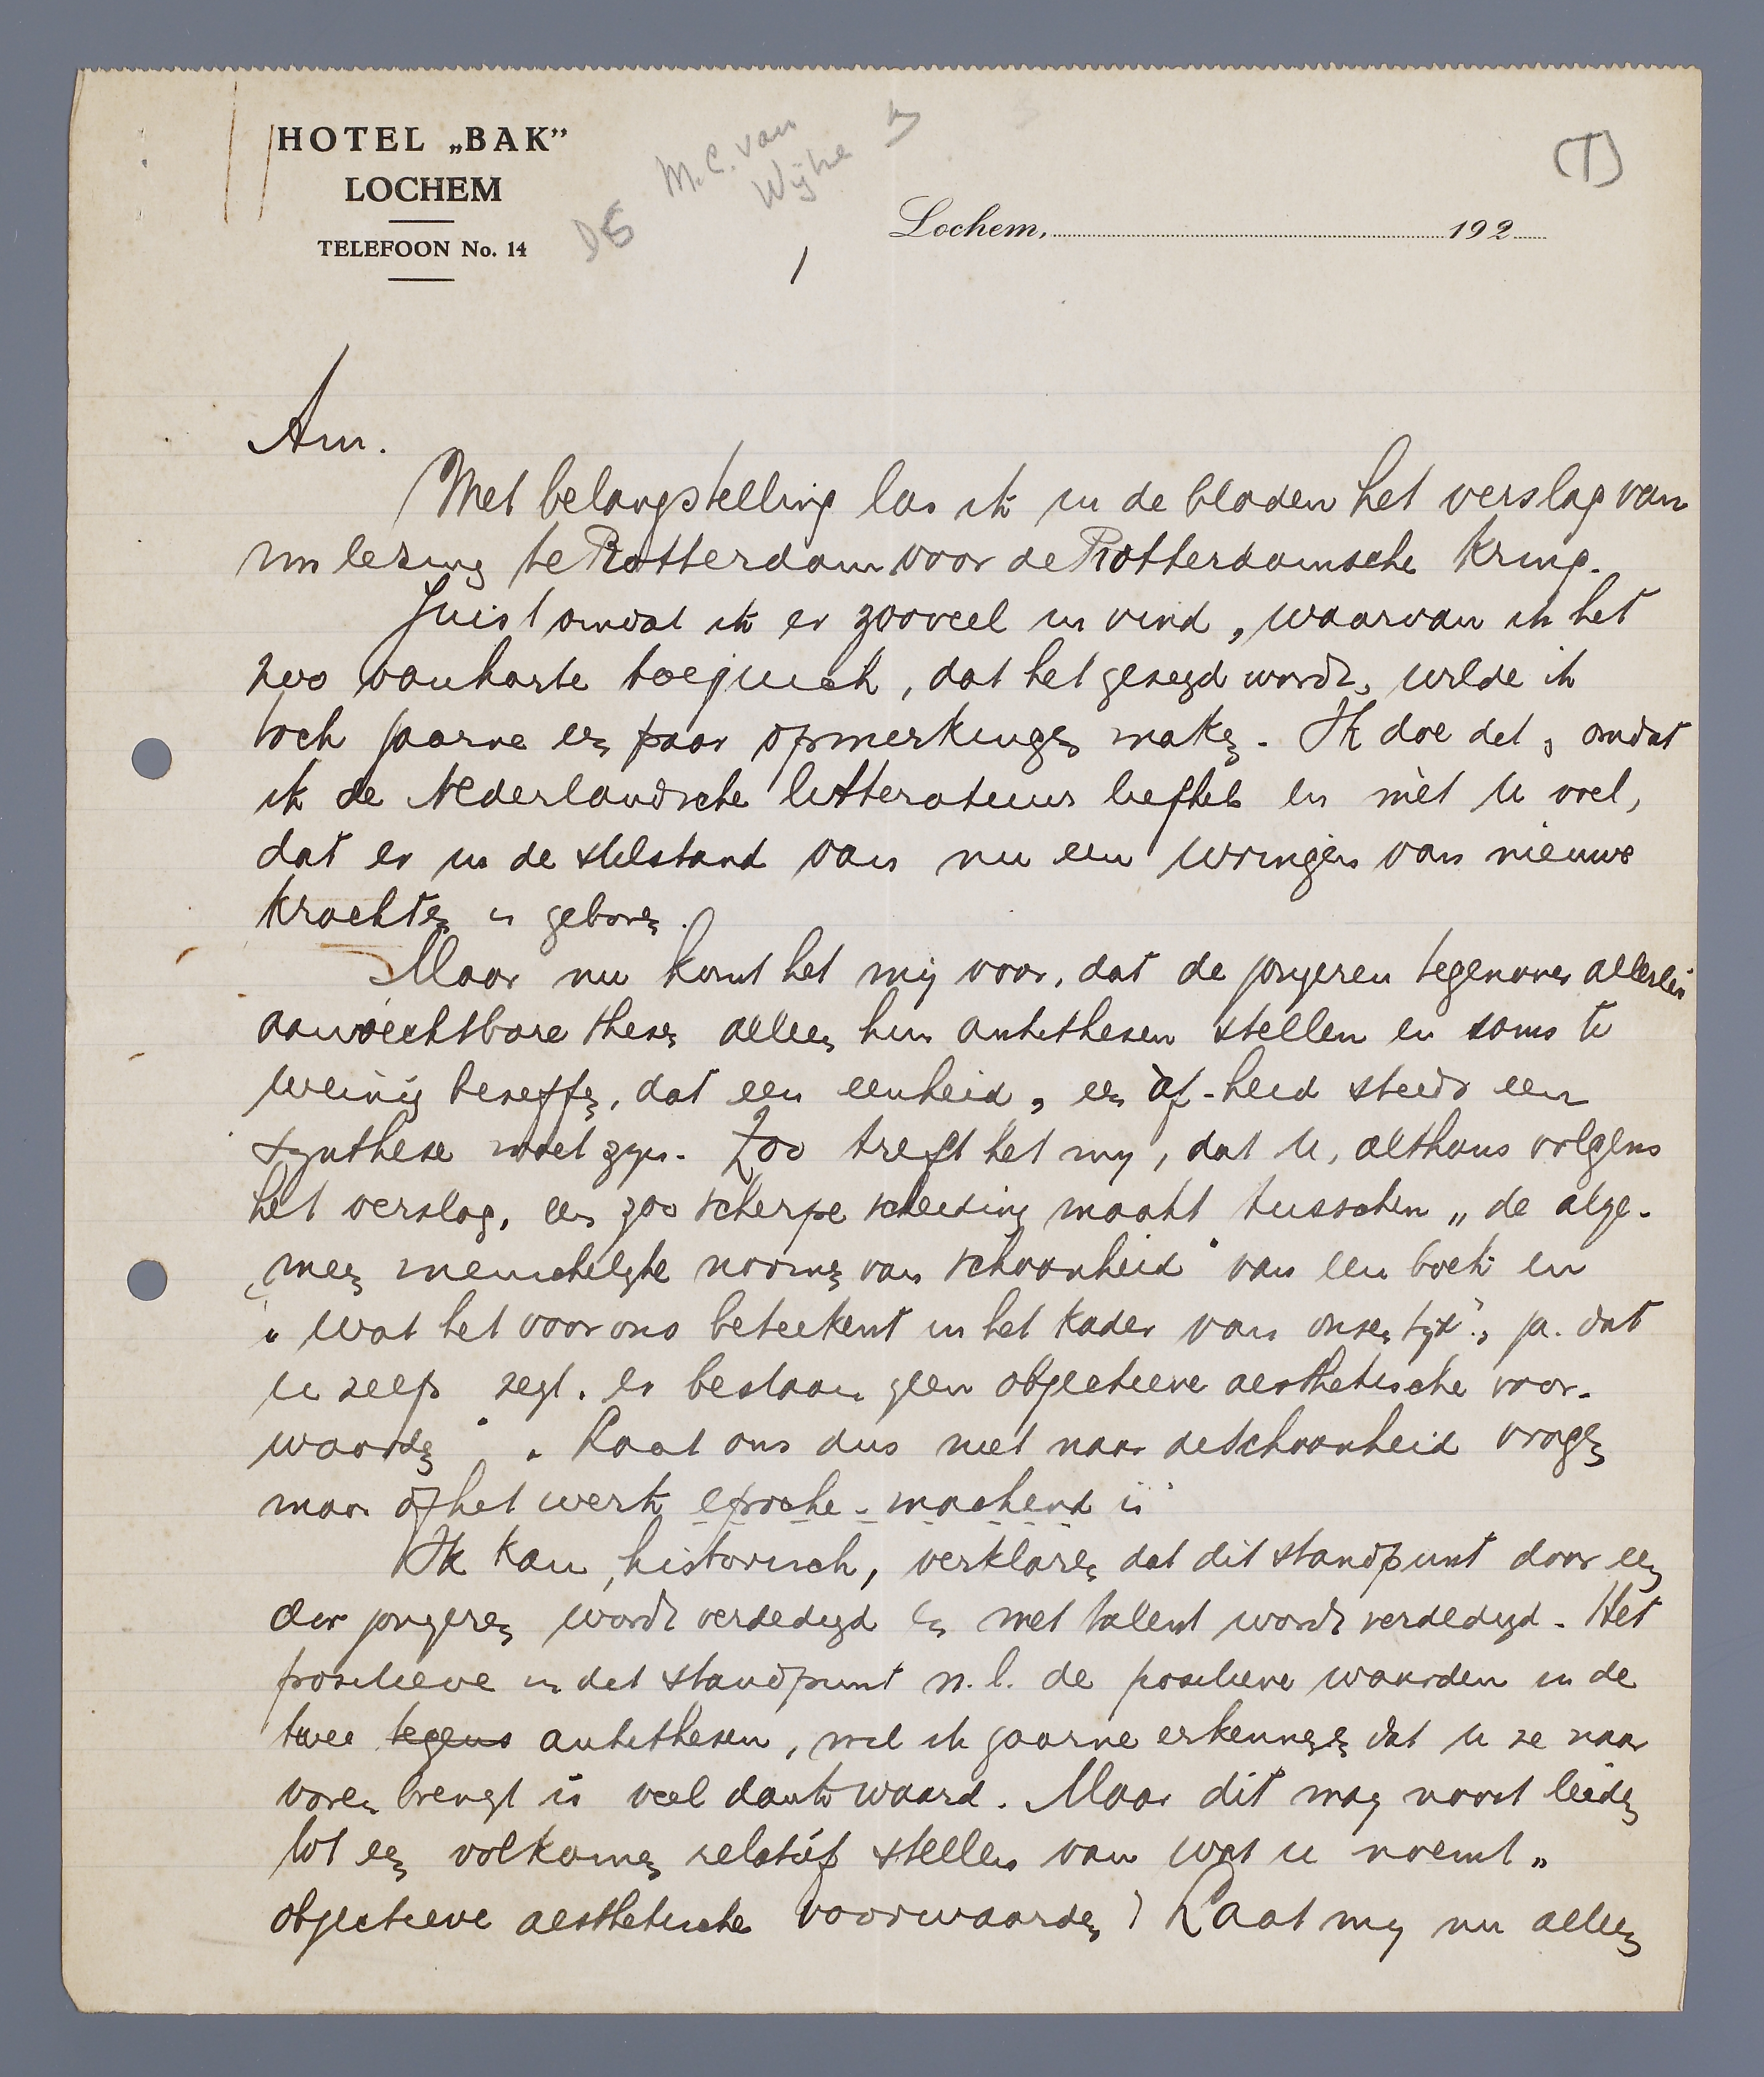 HOTEL „BAK”
LOCHEM
TELEFOON No. 14
M.C. van
Wijhe
D5
(T)
Lochem, 192
1
Am.
Met belangstelling las ik in de bladen het verslag van
lezing te Rotterdam voor de Rotterdamsche Kring.
Juist omdat ik er zooveel in vind, waarvan ik het
zoo vanharte toejuich, dat het gezegd wordt, wilde ik
toch gaarne een paar opmerkingen maken. Ik doe dat, omdat
ik de Nederlandsche litteratuur liefheb en mèt U voel,
dat er in de stilstand van nu een wringen van nieuwe
krachten is geboren.
Maar nu komt het mij voor, dat de jongeren tegenover allerlei
aanvechtbare thesen alleen hun antithesen stellen en soms te
weinig beseffen, dat een eenheid, een àf-heid steeds een
synthese moet zijn. Zoo treft het mij, dat U, althans volgens
het verslag, een zoo scherpe scheiding maakt tusschen „de alge-
meen menschelijke normen van schoonheid" van een boek en
„wat het voor ons beteekent in het kader van onzen tijd", ja. dat
U zelfs zegt „er bestaan geen objectieve aesthetische voor-
waarden" „Laat ons dus niet naar de schoonheid vragen
maar òf het werk epoche-machend is"
Ik kan, historisch, verklaren dat dit standpunt door een
der jongeren wordt verdedigd en met talent wordt verdedigd. Het
positieve in dat standpunt n.l. de positieve waarden in de
twee tegens antithesen, wil ik gaarne erkennen en dat U ze naar
voren brengt is veel dank waard. Maar dit mag nooit leiden
tot een volkomen relatief stellen van wat U noemt „
objectieve aesthetische voorwaarden" Laat mij nu alleen